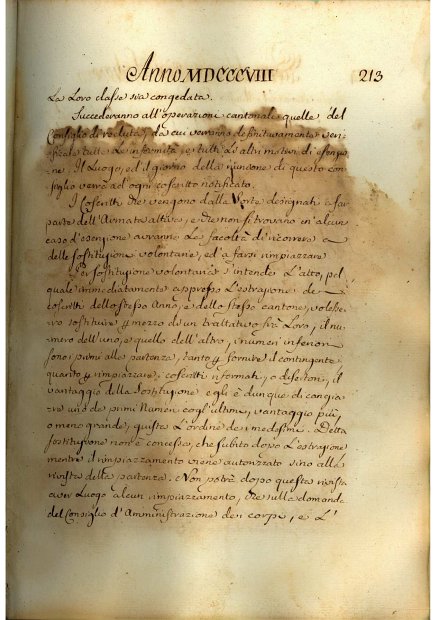 Anno MDCCCVIII 213
La Loro classe sia congedata.
Succederanno all'operazioni cantonali quelle del
Consiglio di reduta, da cui verranno definitivamente veri-
ficate tutte Le infermità, e tutti Li altri motivi di esenzio-
ne. Il Luogo, ed il giorno della riunione di questo con-
seglio verrà ad ogni coscritto notificato.
I Coscritti che vengono dalla sorte designati a far
parte dell'Armata attiva, e che non si trovano in alcun
caso d'esenzione avranno La facoltà di ricorrere a
delle sostituzioni volontarie, ed a farsi rimpiazzare
Per sostituzione volontaria s'intende L'atto, pel
quale immediatamente appresso L'estrazione de
coscritti dello stesso Anno, e dello stesso cantone, volesse-
ro sostituire p mezzo di un trattativo fra Loro, il nu-
mero dell'uno, a quello dell'altro, i numeri inferiori
sono i primi alla partenza, tanto p fornire il contingente
quanto p rimpiazzare i coscritti infermati, o disertori, il
vantaggio della sostituzione egli è dunque di cangia-
re uno de primi Numeri cogl'ultimi, vantaggio più,
o meno grande, giusta L'ordine dei medesimi. Detta
sostituzione non è concessa, che subito dopo L'estrazione
mentre il rimpiazzamento viene autorizzato sino alla
rivista della partenza. Non potrà dopo questa rivista
aver Luogo alcun rimpiazzamento, che sulla domanda
del Consiglio d'Amministrazione dei corpi, e L'